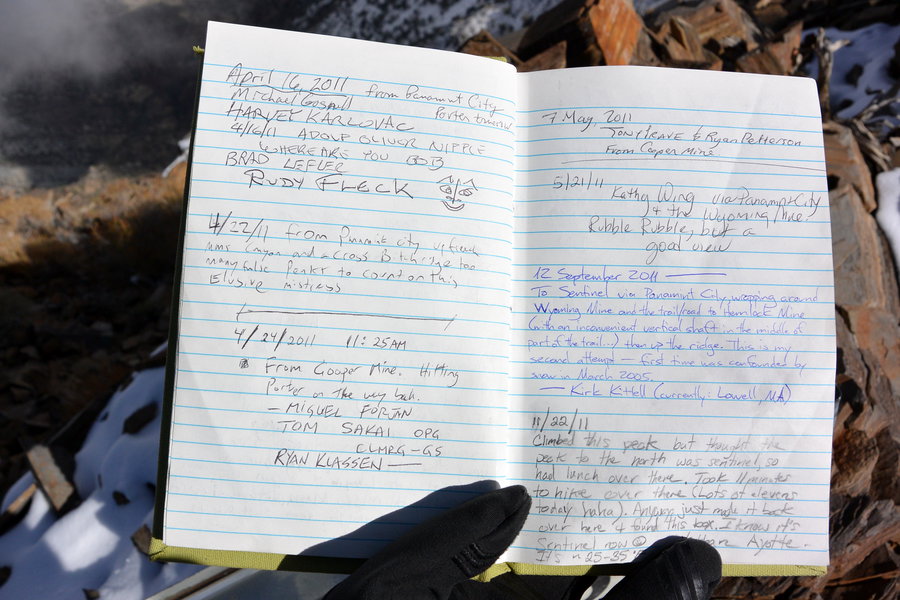 April 16, 2011 from Panamint City
Michael Porter traverse
HARVEY KARLOVAC
4/16/11 ADOLF OLIVER NIPPLE
WHERE ARE YOU BOB
BRAD LEFLER
RUDY FLECK
4/22/11 from Panamint city up
Canyon and across too
many false Peaks to count on this
Elusive mistress
4/24/2011 11:25AM
From Cooper Mine. Hitting
Porter on the way back.
- MIGUEL FORJAN
TOM SAKAI OPG
CLMRG-GS
RYAN KLASSEN
7 May 2011
& Ryan Petterson
From Cooper Mine
5/21/11
Kathy Wing via Panamint City
+ the Wyoming Mine.
Rubble Rubble, but a
good view
12 September 2011
To Sentinel via Panamint City, wrapping around
Wyoming Mine and the trail/road to Hemlock Mine
(with an inconvenient vertical shaft in the middle of
part of the trail...) then up the ridge. This is my
second attempt — first time was confounded by
snow in March 2005.
— Kirk Kittell (currently: Lowell, MA)
11/22/11
Climbed this peak but thought the
peak to the north was sentinel, so
had lunch over there. Took 11 minutes
to hike over there (Lots of elevens
today haha). Anyway, just made it back
over here & found this box. I know it's
Sentinel now Ayotte.
It's ~25-35